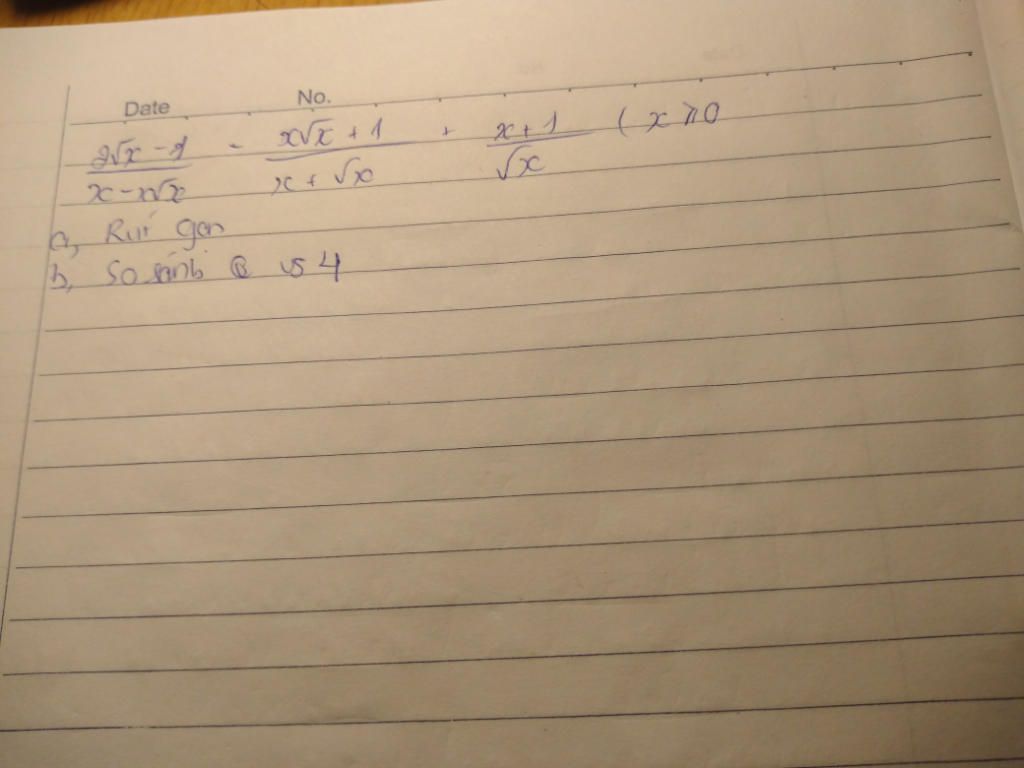 Date No.
2√x - 2 / x - x√x - x√x + 1 / x + √x + x + 1 / √x ( x ⩾ 0
a, Rút gọn
b, So sánh Q vs 4